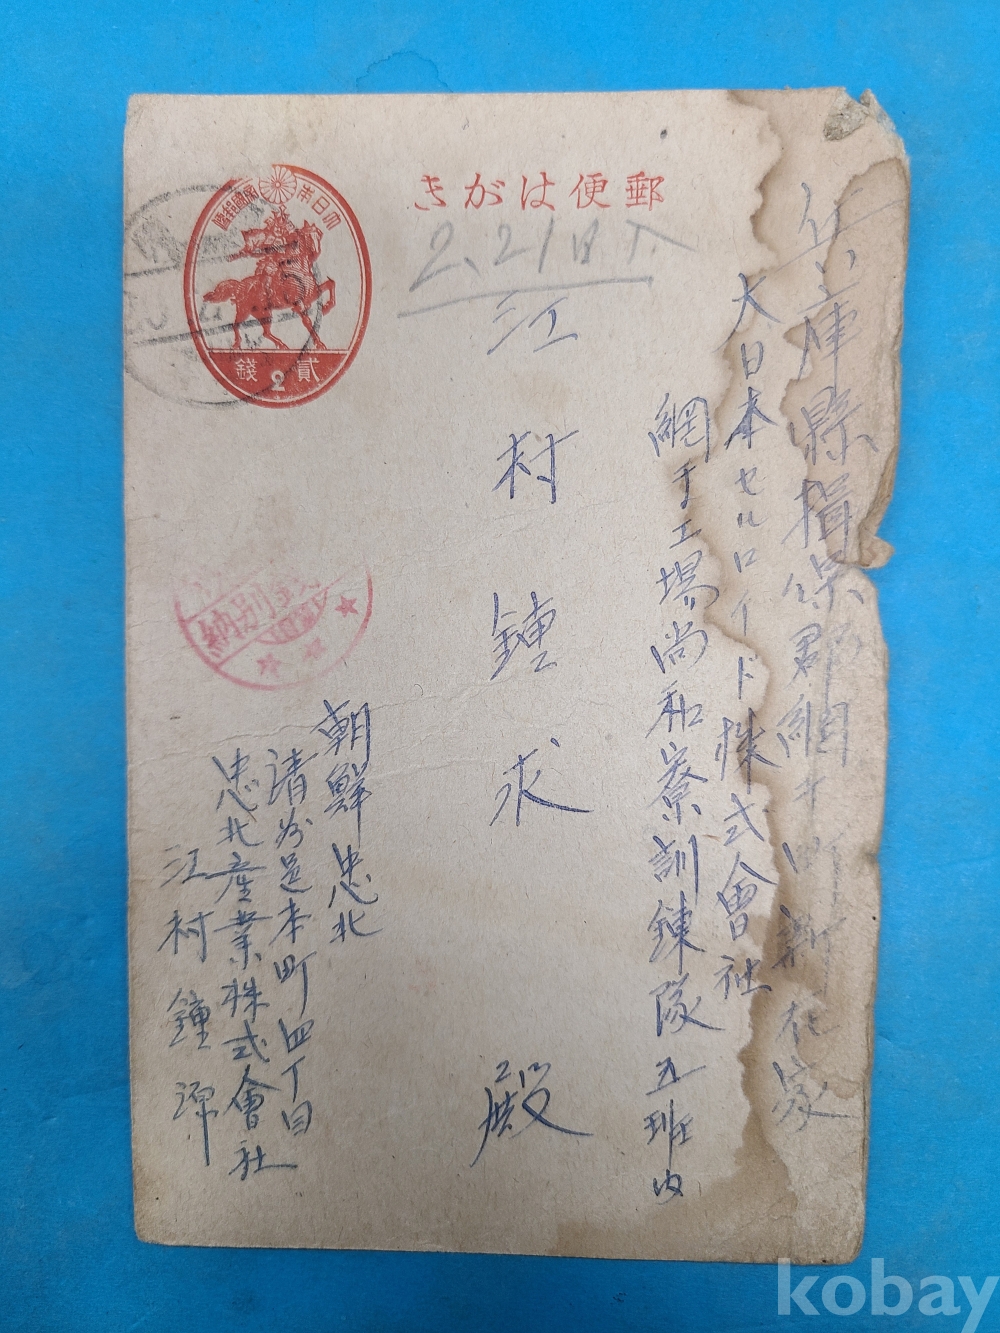 郵便はがき
大日本帝國郵便
貳錢
2
2.21日
料金別納
兵庫縣揖保郡網干町新在家
大日本セルロイド株式會社
網干工場尚和寮訓鍊隊五班内
江村鍾求殿
朝鮮忠北
清州邑本町四丁目
忠北產業株式會社
江村鍾
kobay